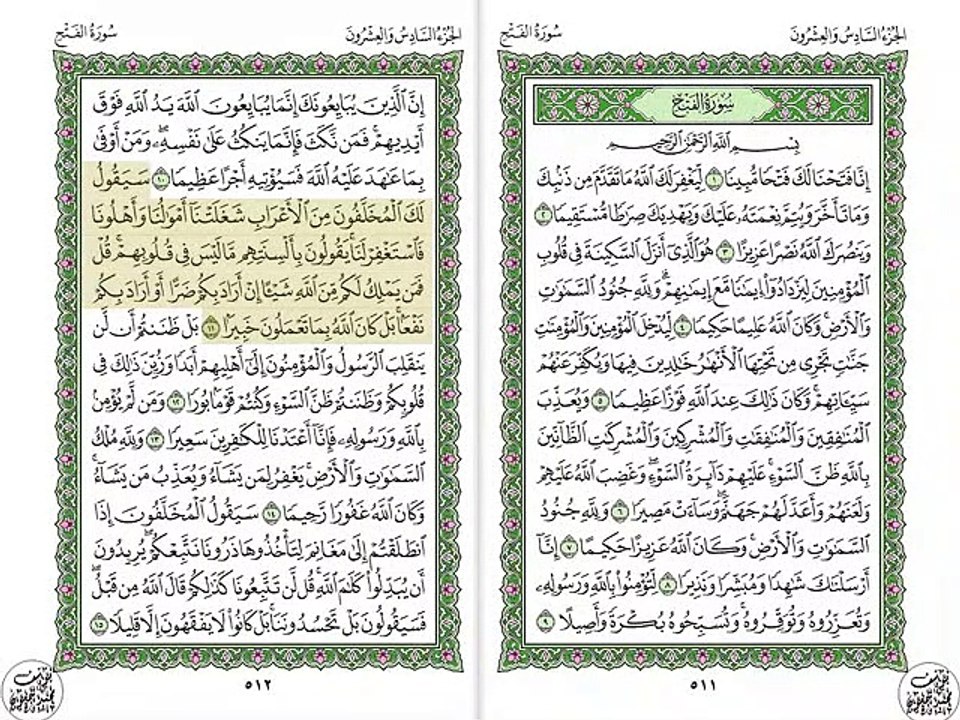 الجزء السادس والعشرون
سورة الفتح
سُورَةُ الفَتْحِ
بِسْمِ اللَّهِ الرَّحْمَٰنِ الرَّحِيمِ
إِنَّا فَتَحْنَا لَكَ فَتْحًا مُّبِينًا ١ لِّيَغْفِرَ لَكَ اللَّهُ مَا تَقَدَّمَ مِن ذَنبِكَ
وَمَا تَأَخَّرَ وَيُتِمَّ نِعْمَتَهُۥ عَلَيْكَ وَيَهْدِيَكَ صِرَٰطًا مُّسْتَقِيمًا ٢
وَيَنصُرَكَ اللَّهُ نَصْرًا عَزِيزًا ٣ هُوَ الَّذِىٓ أَنزَلَ السَّكِينَةَ فِى قُلُوبِ
الْمُؤْمِنِينَ لِيَزْدَادُوٓا۟ إِيمَٰنًا مَّعَ إِيمَٰنِهِمْ ۗ وَلِلَّهِ جُنُودُ السَّمَٰوَٰتِ
وَالْأَرْضِ ۚ وَكَانَ اللَّهُ عَلِيمًا حَكِيمًا ٤ لِّيُدْخِلَ الْمُؤْمِنِينَ وَالْمُؤْمِنَٰتِ
جَنَّٰتٍ تَجْرِى مِن تَحْتِهَا الْأَنْهَٰرُ خَٰلِدِينَ فِيهَا وَيُكَفِّرَ عَنْهُمْ
سَيِّـَٔاتِهِمْ ۚ وَكَانَ ذَٰلِكَ عِندَ اللَّهِ فَوْزًا عَظِيمًا ٥ وَيُعَذِّبَ
الْمُنَٰفِقِينَ وَالْمُنَٰفِقَٰتِ وَالْمُشْرِكِينَ وَالْمُشْرِكَٰتِ الظَّآنِّينَ
بِاللَّهِ ظَنَّ السَّوْءِ ۚ عَلَيْهِمْ دَآئِرَةُ السَّوْءِ ۖ وَغَضِبَ اللَّهُ عَلَيْهِمْ
وَلَعَنَهُمْ وَأَعَدَّ لَهُمْ جَهَنَّمَ ۖ وَسَآءَتْ مَصِيرًا ٦ وَلِلَّهِ جُنُودُ
السَّمَٰوَٰتِ وَالْأَرْضِ ۚ وَكَانَ اللَّهُ عَزِيزًا حَكِيمًا ٧ إِنَّآ
أَرْسَلْنَٰكَ شَٰهِدًا وَمُبَشِّرًا وَنَذِيرًا ٨ لِّتُؤْمِنُوا۟ بِاللَّهِ وَرَسُولِهِۦ
وَتُعَزِّرُوهُ وَتُوَقِّرُوهُ ۚ وَتُسَبِّحُوهُ بُكْرَةً وَأَصِيلًا ٩
٥١١
الجزء السادس والعشرون
سورة الفتح
إِنَّ الَّذِينَ يُبَايِعُونَكَ إِنَّمَا يُبَايِعُونَ اللَّهَ يَدُ اللَّهِ فَوْقَ
أَيْدِيهِمْ ۚ فَمَن نَّكَثَ فَإِنَّمَا يَنكُثُ عَلَىٰ نَفْسِهِۦ ۖ وَمَنْ أَوْفَىٰ
بِمَا عَٰهَدَ عَلَيْهُ اللَّهَ فَسَيُؤْتِيهِ أَجْرًا عَظِيمًا ١٠ سَيَقُولُ
لَكَ الْمُخَلَّفُونَ مِنَ الْأَعْرَابِ شَغَلَتْنَآ أَمْوَٰلُنَا وَأَهْلُونَا
فَاسْتَغْفِرْ لَنَا ۚ يَقُولُونَ بِأَلْسِنَتِهِم مَّا لَيْسَ فِى قُلُوبِهِمْ ۚ قُلْ
فَمَن يَمْلِكُ لَكُم مِّنَ اللَّهِ شَيْـًٔا إِنْ أَرَادَ بِكُمْ ضَرًّا أَوْ أَرَادَ بِكُمْ
نَفْعًۢا ۚ بَلْ كَانَ اللَّهُ بِمَا تَعْمَلُونَ خَبِيرًۢا ١١ بَلْ ظَنَنتُمْ أَن لَّن
يَنقَلِبَ الرَّسُولُ وَالْمُؤْمِنُونَ إِلَىٰٓ أَهْلِيهِمْ أَبَدًا وَزُيِّنَ ذَٰلِكَ فِى
قُلُوبِكُمْ وَظَنَنتُمْ ظَنَّ السَّوْءِ وَكُنتُمْ قَوْمًۢا بُورًا ١٢ وَمَن لَّمْ يُؤْمِنۢ
بِاللَّهِ وَرَسُولِهِۦ فَإِنَّآ أَعْتَدْنَا لِلْكَٰفِرِينَ سَعِيرًا ١٣ وَلِلَّهِ مُلْكُ
السَّمَٰوَٰتِ وَالْأَرْضِ ۚ يَغْفِرُ لِمَن يَشَآءُ وَيُعَذِّبُ مَن يَشَآءُ ۚ
وَكَانَ اللَّهُ غَفُورًا رَّحِيمًا ١٤ سَيَقُولُ الْمُخَلَّفُونَ إِذَا
انطَلَقْتُمْ إِلَىٰ مَغَانِمَ لِتَأْخُذُوهَا ذَرُونَا نَتَّبِعْكُمْ ۖ يُرِيدُونَ
أَن يُبَدِّلُوا۟ كَلَٰمَ اللَّهِ ۚ قُل لَّن تَتَّبِعُونَا كَذَٰلِكُمْ قَالَ اللَّهُ مِن قَبْلُ ۖ
فَسَيَقُولُونَ بَلْ تَحْسُدُونَنَا ۚ بَلْ كَانُوا۟ لَا يَفْقَهُونَ إِلَّا قَلِيلًا ١٥
٥١٢